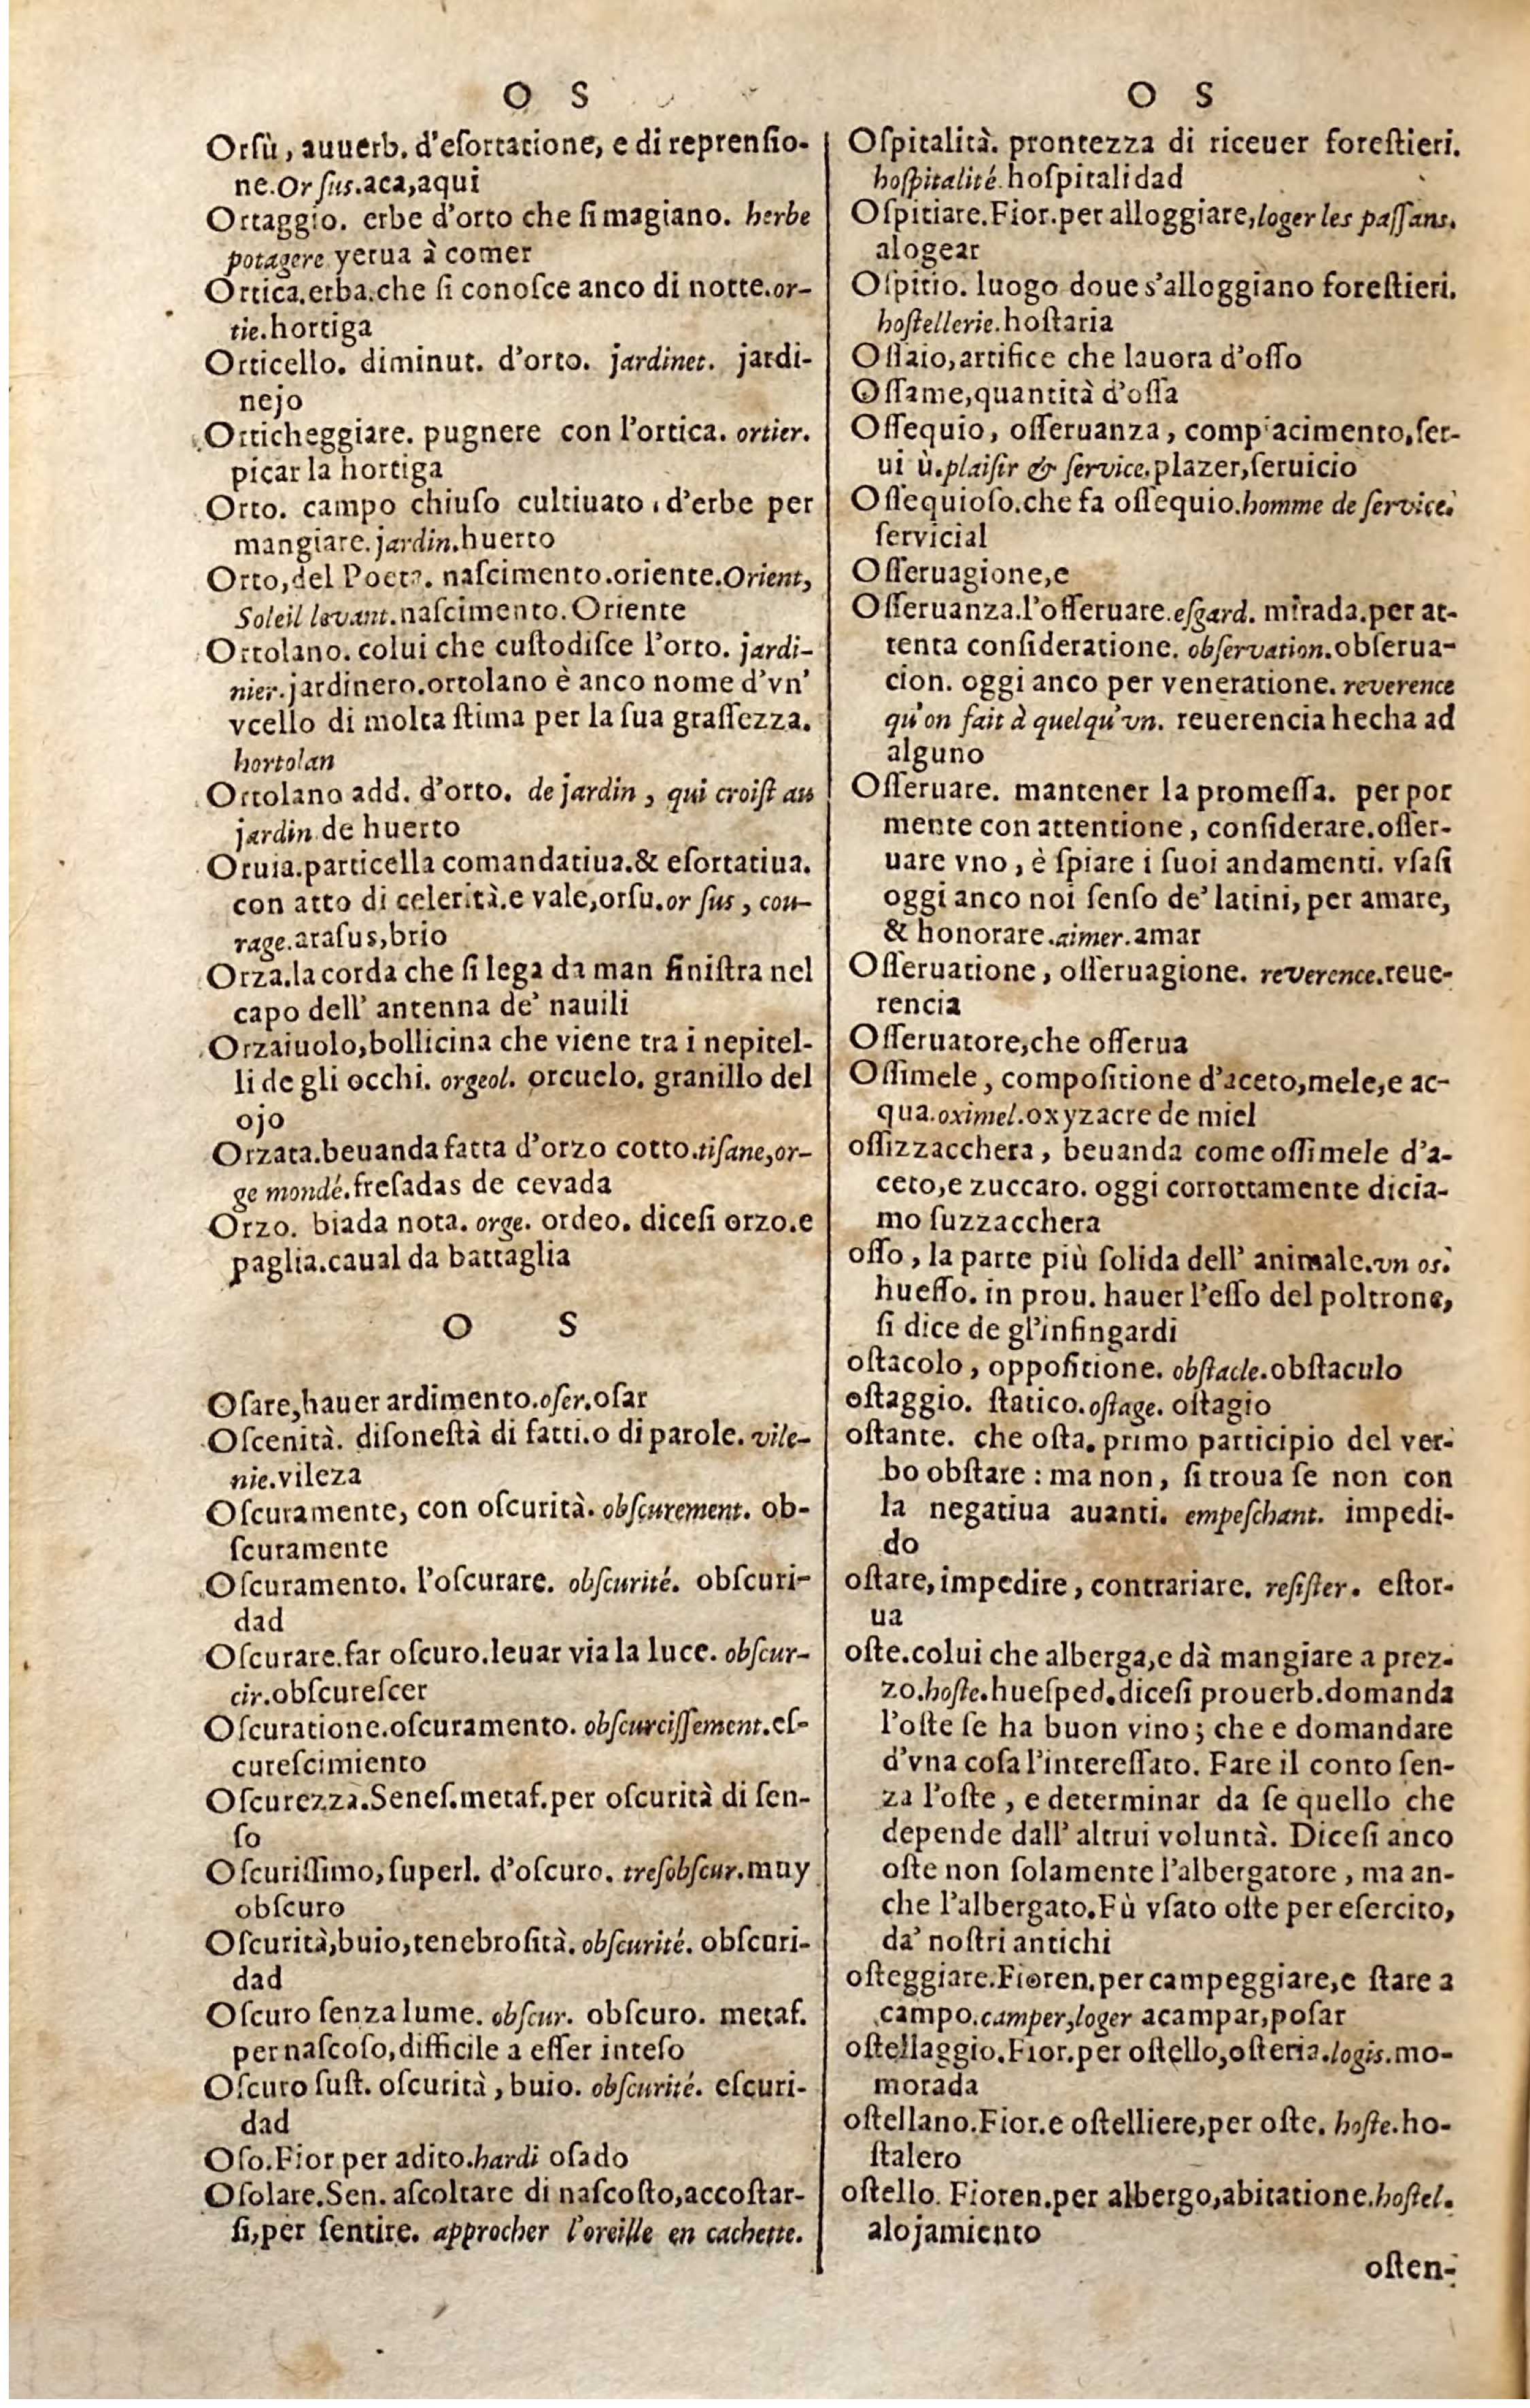 O S
Orſù, auuerb. d'eſortatione, e di reprenſio-
ne. Or ſus. aca, aqui
Ortaggio. erbe d'orto che ſi magiano. herbe
potagere yerua à comer
Ortica. erba. che ſi conoſce anco di notte. or-
tie. hortiga
Orticello. diminut. d'orto. jardinet. jardi-
nejo
Orticheggiare. pugnere con l'ortica. ortier.
picar la hortiga
Orto. campo chiuſo cultiuato, d'erbe per
mangiare. jardin. huerto
Orto, del Poeta. naſcimento. oriente. Orient,
Soleil levant. naſcimento. Oriente
Ortolano. colui che cuſtodiſce l'orto. jardi-
nier. jardinero. ortolano è anco nome d'vn'
vcello di molta ſtima per la ſua graſſezza.
hortolan
Ortolano add. d'orto. de jardin, qui croiſt au
jardin de huerto
Oruia. particella comandatiua. & eſortatiua.
con atto di celerità. e vale, orſu. or ſus, cou-
rage. araſus, brio
Orza. la corda che ſi lega da man ſiniſtra nel
capo dell' antenna de' nauili
Orzaiuolo, bollicina che viene tra i nepitel-
li de gli occhi. orgeol. orcuelo. granillo del
ojo
Orzata. beuanda fatta d'orzo cotto. tiſane, or-
ge mondé. freſadas de cevada
Orzo. biada nota. orge. ordeo. diceſi orzo. e
paglia. caual da battaglia
O S
Oſare, hauer ardimento. oſer. oſar
Oſcenità. diſoneſtà di fatti. o di parole. vile-
nie. vileza
Oſcuramente, con oſcurità. obſcurement. ob-
ſcuramente
Oſcuramento. l'oſcurare. obſcurité. obſcuri-
dad
Oſcurare. far oſcuro. leuar via la luce. obſcur-
cir. obſcureſcer
Oſcuratione. oſcuramento. obſcurciſſement. eſ-
cureſcimiento
Oſcurezza. Seneſ. metaf. per oſcurità di ſen-
ſo
Oſcuriſſimo, ſuperl. d'oſcuro. treſobſcur. muy
obſcuro
Oſcurità, buio, tenebroſità. obſcurité. obſcuri-
dad
Oſcuro ſenza lume. obſcur. obſcuro. metaf.
per naſcoſo, difficile a eſſer inteſo
Oſcuro ſuſt. oſcurità, buio. obſcurité. eſcuri-
dad
Oſo. Fior per adito. hardi oſado
Oſolare. Sen. aſcoltare di naſcoſto, accoſtar-
ſi, per ſentire. approcher l'oreille en cachette.
O S
Oſpitalità. prontezza di riceuer foreſtieri.
hoſpitalité. hoſpitalidad
Oſpitiare. Fior. per alloggiare, loger les paſſans.
alogear
Oſpitio. luogo doue s'alloggiano foreſtieri.
hoſtellerie. hoſtaria
Oſſaio, artifice che lauora d'oſſo
Oſſame, quantità d'oſſa
Oſſequio, oſſeruanza, compiacimento, ſer-
ui ù. plaiſir & ſervice. plazer, ſeruicio
Oſſequioſo. che fa oſſequio. homme de ſervice.
ſervicial
Oſſeruagione, e
Oſſeruanza. l'oſſeruare. eſgard. mirada. per at-
tenta conſideratione. obſervation. obſerua-
cion. oggi anco per veneratione. reverence
qu'on fait à quelqu'vn. reuerencia hecha ad
alguno
Oſſeruare. mantener la promeſſa. per por
mente con attentione, conſiderare. oſſer-
uare vno, è ſpiare i ſuoi andamenti. vſaſi
oggi anco noi ſenſo de' latini, per amare,
& honorare. aimer. amar
Oſſeruatione, oſſeruagione. reverence. reue-
rencia
Oſſeruatore, che oſſerua
Oſſimele, compoſitione d'aceto, mele, e ac-
qua. oximel. oxyzacre de miel
oſſizzacchera, beuanda come oſſimele d'a-
ceto, e zuccaro. oggi corrottamente dicia-
mo ſuzzacchera
oſſo, la parte più ſolida dell' animale. vn os.
hueſſo. in prou. hauer l'eſſo del poltrone,
ſi dice de gl'infingardi
oſtacolo, oppoſitione. obſtacle. obſtaculo
oſtaggio. ſtatico. oſtage. oſtagio
oſtante. che oſta. primo participio del ver-
bo obſtare : ma non, ſi troua ſe non con
la negatiua auanti. empeſchant. impedi-
do
oſtare, impedire, contrariare. reſiſter. eſtor-
ua
oſte. colui che alberga, e dà mangiare a prez-
zo. hoſte. hueſped. diceſi prouerb. domanda
l'oſte ſe ha buon vino; che e domandare
d'vna coſa l'intereſſato. Fare il conto ſen-
za l'oſte, e determinar da ſe quello che
depende dall' altrui voluntà. Diceſi anco
oſte non ſolamente l'albergatore, ma an-
che l'albergato. Fù vſato oſte per eſercito,
da' noſtri antichi
oſteggiare. Fioren. per campeggiare, e ſtare a
campo. camper, loger acampar, poſar
oſtellaggio. Fior. per oſtello, oſteria. logis. mo-
morada
oſtellano. Fior. e oſtelliere, per oſte. hoſte. ho-
ſtalero
oſtello. Fioren. per albergo, abitatione. hoſtel.
alojamiento
oſten-